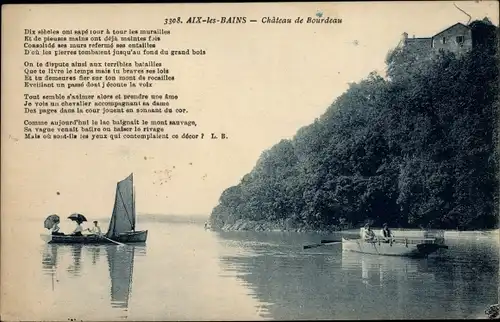 3308. AIX-les-BAINS - Château de Bourdeau
Dix siècles ont sapé tour à tour les murailles
Et de pieuses mains ont déjà maintes fois
Consolidé ses murs refermé ses entailles
D'où les pierres tombaient jusqu'au fond du grand bois
On te dispute ainsi aux terribles batailles
Que te livre le temps mais tu braves ses lois
Et tu demeures fier encore en tes rocailles
Eveillant un passé dont j'écoute la voix
Tout semble s'animer alors et prendre une âme
Je vois un chevalier accompagnant sa dame
Des pages dans la cour jouent en sonnant du cor.
Comme aujourd'hui le lac baignait le mont sauvage,
Sa vague venait battre ou baiser le rivage
Mais où sont-ils les yeux qui contemplaient ce décor ? L. B.